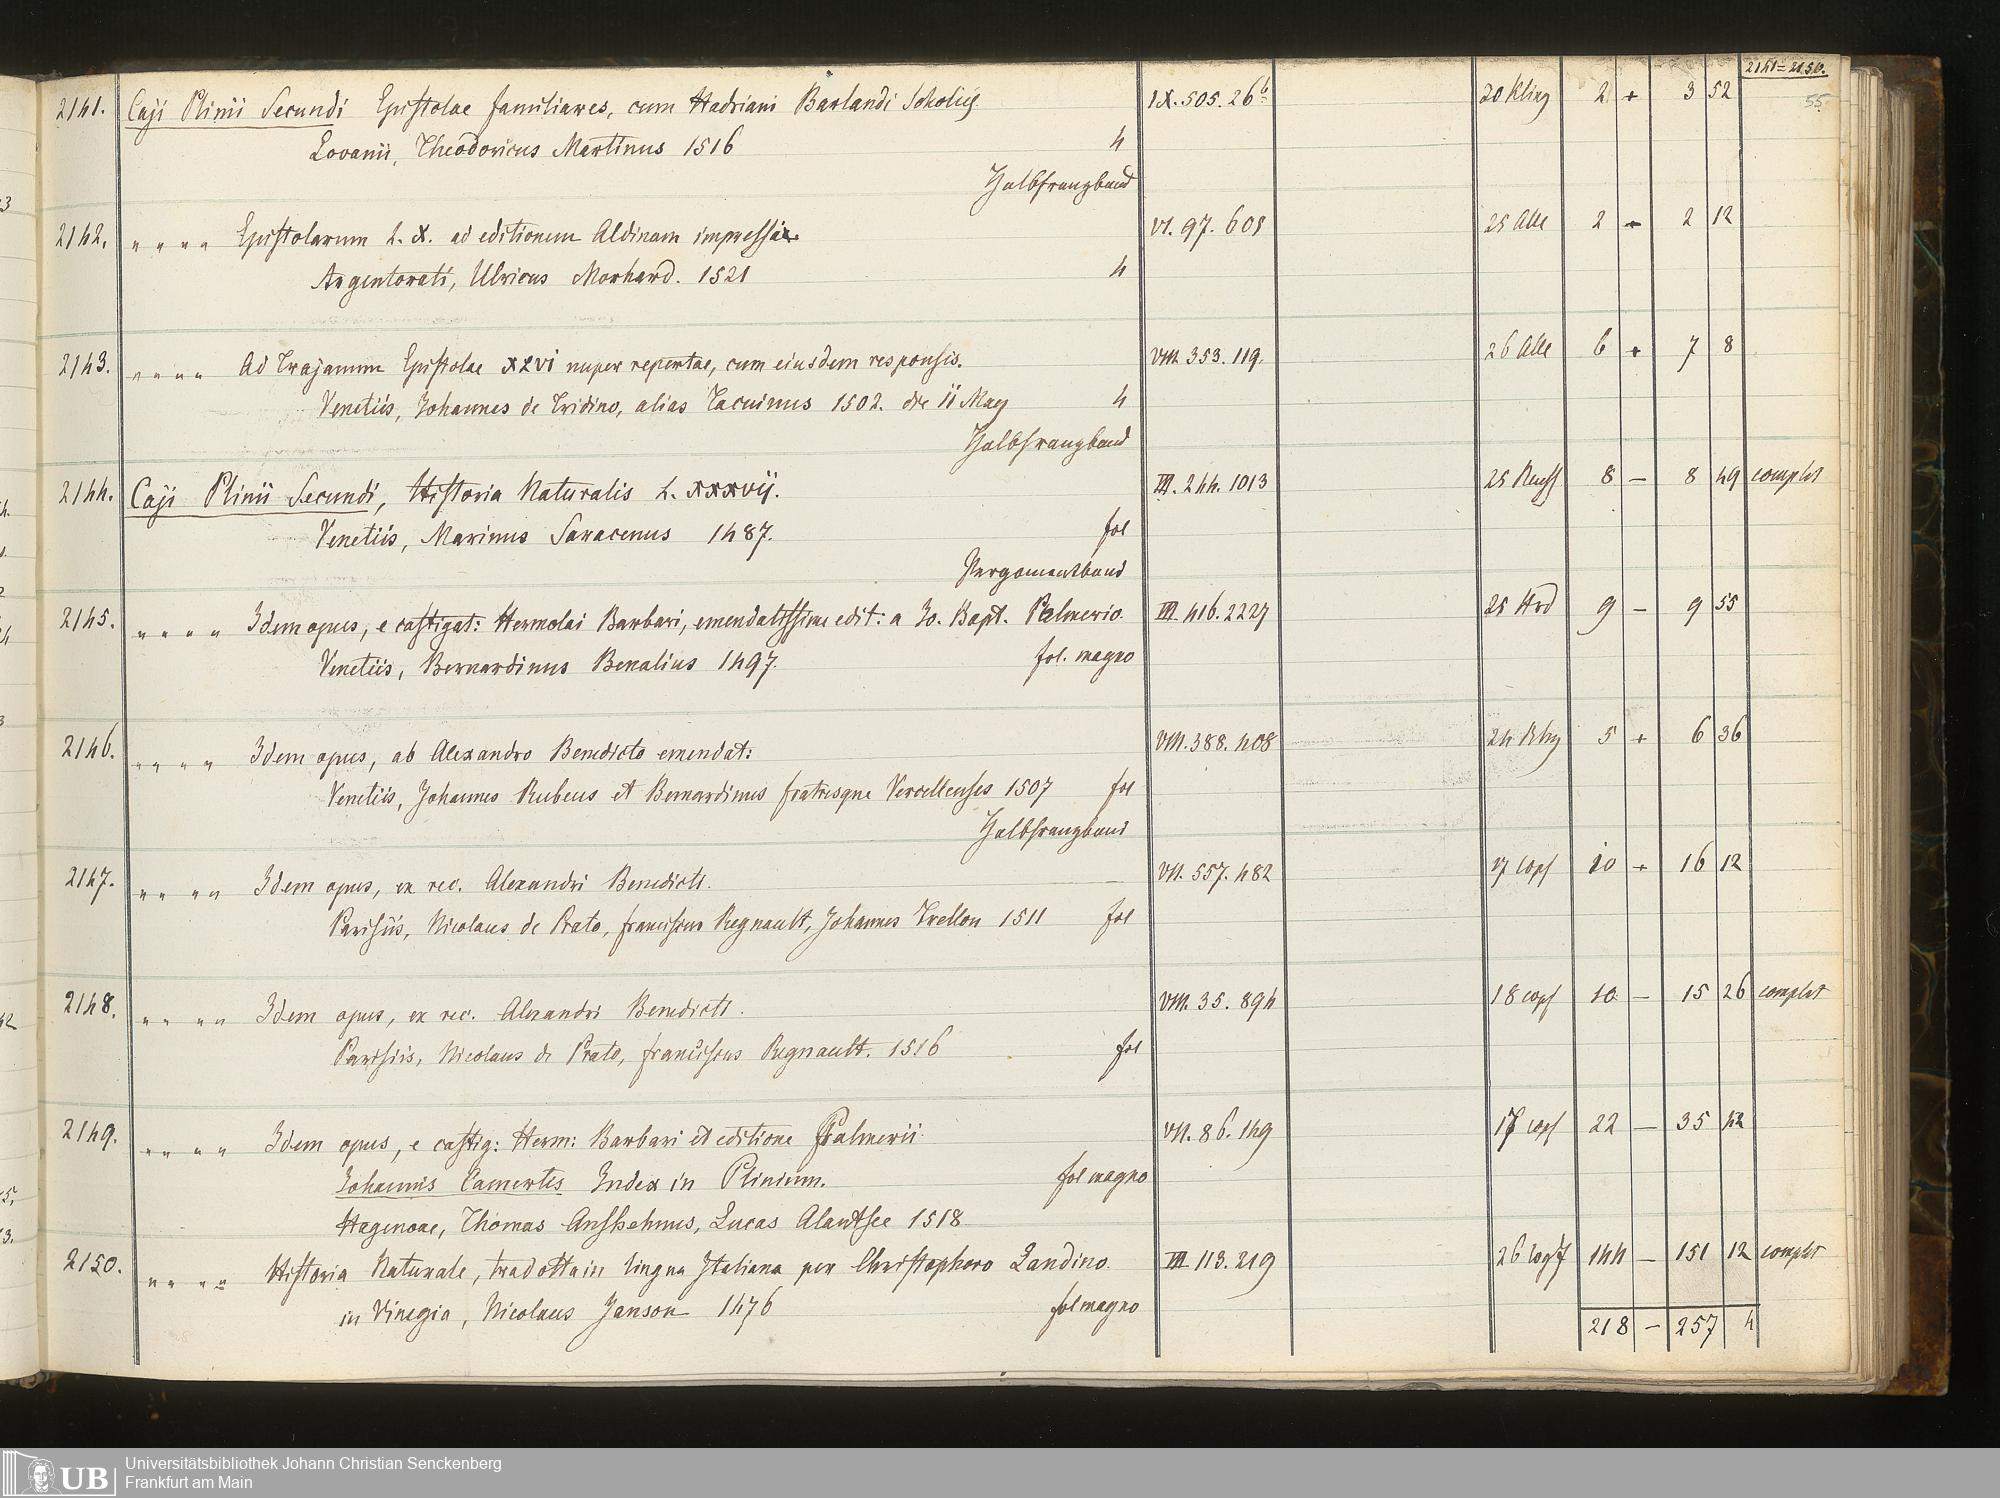 2141=2150.
55.
2141. Caji Plinii Secundi Epistolae familiares, cum Hadriani Barlandi Scholiis IX. 505. 26b 2 + 3 52
Lovanii, Theodoricus Martinus 1516 4
Halbfranzband
2142. " " " " Epistolarum L. X. ad editionem Aldinam impressi VI. 97. 2 2 12
Argentorati, Ulricus Morhard. 1521 4
2143. " " " " Ad Trajanum Epistolae XLVI nuper repertae, cum eiusdem responsis. VIII. 353. 119. 6 + 7 8
Venetiis, Johannes de Tridino, alias Tacuinus 1502. die II May 4
Halbfranzband
2144. Caji Plinii Secundi, Historia Naturalis L. XXXVIJ. III. 244. 1013 25 8 – 8 49 complet
Venetiis, Marinus Saracenus 1487. fol
Pergamentband
2145. " " " " Idem opus, e castigat: Hermolai Barbari, emendatissime edit: a Jo. Bapt. Palmerio. III. 416. 2227 25 9 – 9 55
Venetiis, Bernardinus Benalius 1497. fol. magno
2146. " " " " Idem opus, ab Alexandro Benedicto emendat: VIII. 388. 408 24 5 + 6 36
Venetiis, Johannes Rubeus et Bernardinus fratresque Vercellenses 1507 fol
Halbfranzband
2147. " " " " Idem opus, ex rec. Alexandri Benedicti. VII. 557. 482 10 + 16 12
Parisiis, Nicolaus de Prato, franciscus Regnault, Johannes Trellon 1511 fol
2148. " " " " Idem opus, ex rec. Alexandri Benedicti. VIII. 35. 894 18 10 – 15 26 complet
Parisiis, Nicolaus de Prato, franciscus Regnault. 1516 fol
2149. " " " " Idem opus, e castig: Herm: Barbari et editione Palmerii VII. 86. 149 22 – 35 42
Johannis Camertis Index in Plinium. fol magno
Hagenoae, Thomas Anshelmus, Lucas Alantsee 1518
2150. " " " " Historia Naturale, tradotta in lingua Italiana per Christophoro Landino. 113. 219 26 144 – 151 12 complet
in Vinegia, Nicolaus Janson 1476 fol magno
218 – 257 4
UB
Universitätsbibliothek Johann Christian Senckenberg
Frankfurt am Main